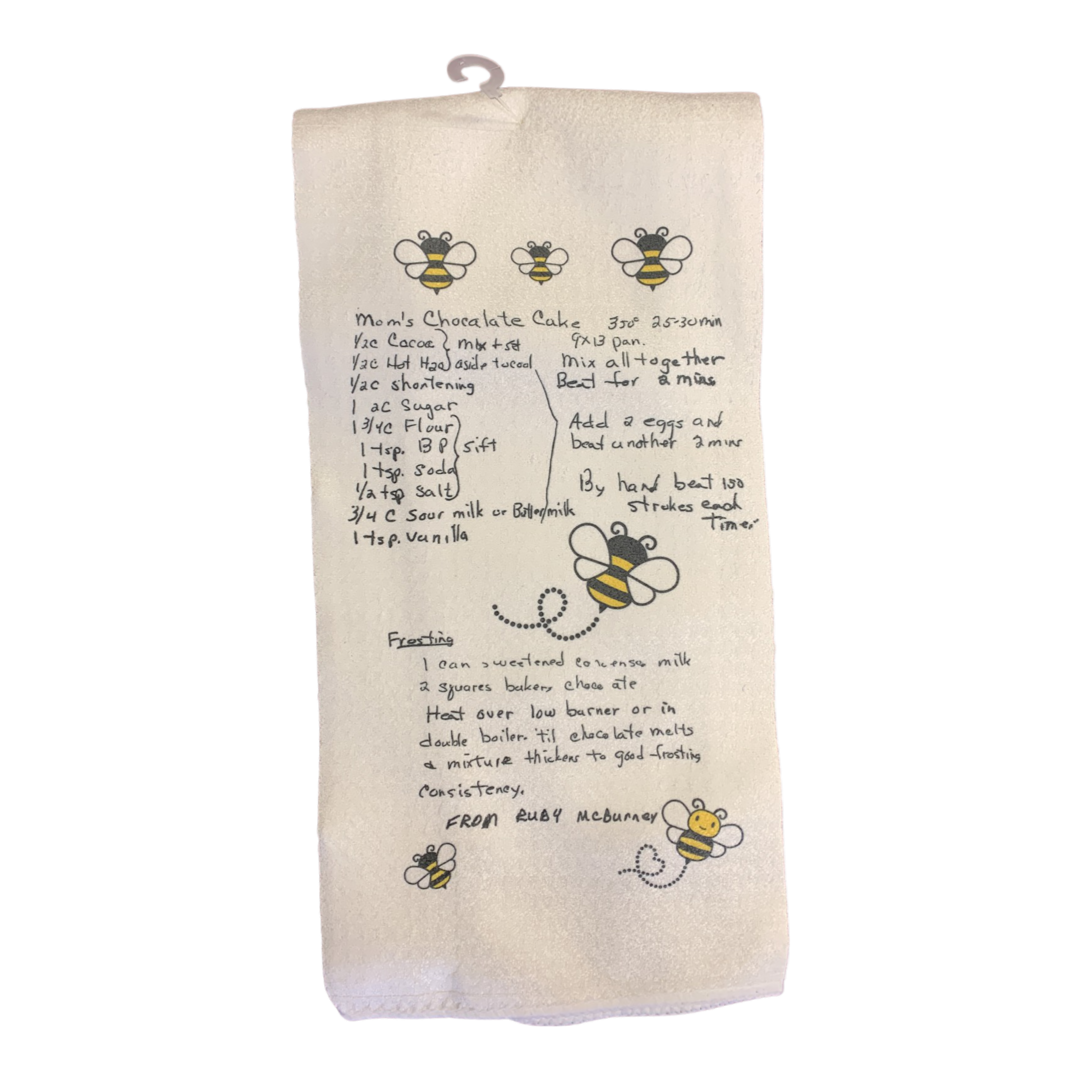 Mom's Chocalate Cake 350° 25-30 min
1/2c Cocoa } mix + set 9x13 pan.
1/2c Hot H2O } aside to cool Mix all together
1/2c shortening Beat for 2 mins
1 2c Sugar
1 3/4c Flour Add 2 eggs and
1 tsp. BP } sift beat another 2 mins
1 tsp. Soda
1/2 tsp Salt By hand beat 150
3/4 C Sour milk or Buttermilk strokes each
1 tsp. Vanilla Time.
Frosting
1 can sweetened condense milk
2 squares bakers choco ate
Heat over low burner or in
double boiler. 'til chocolate melts
& mixture thickens to good frosting
consistency.
FROM RUBY McBurney